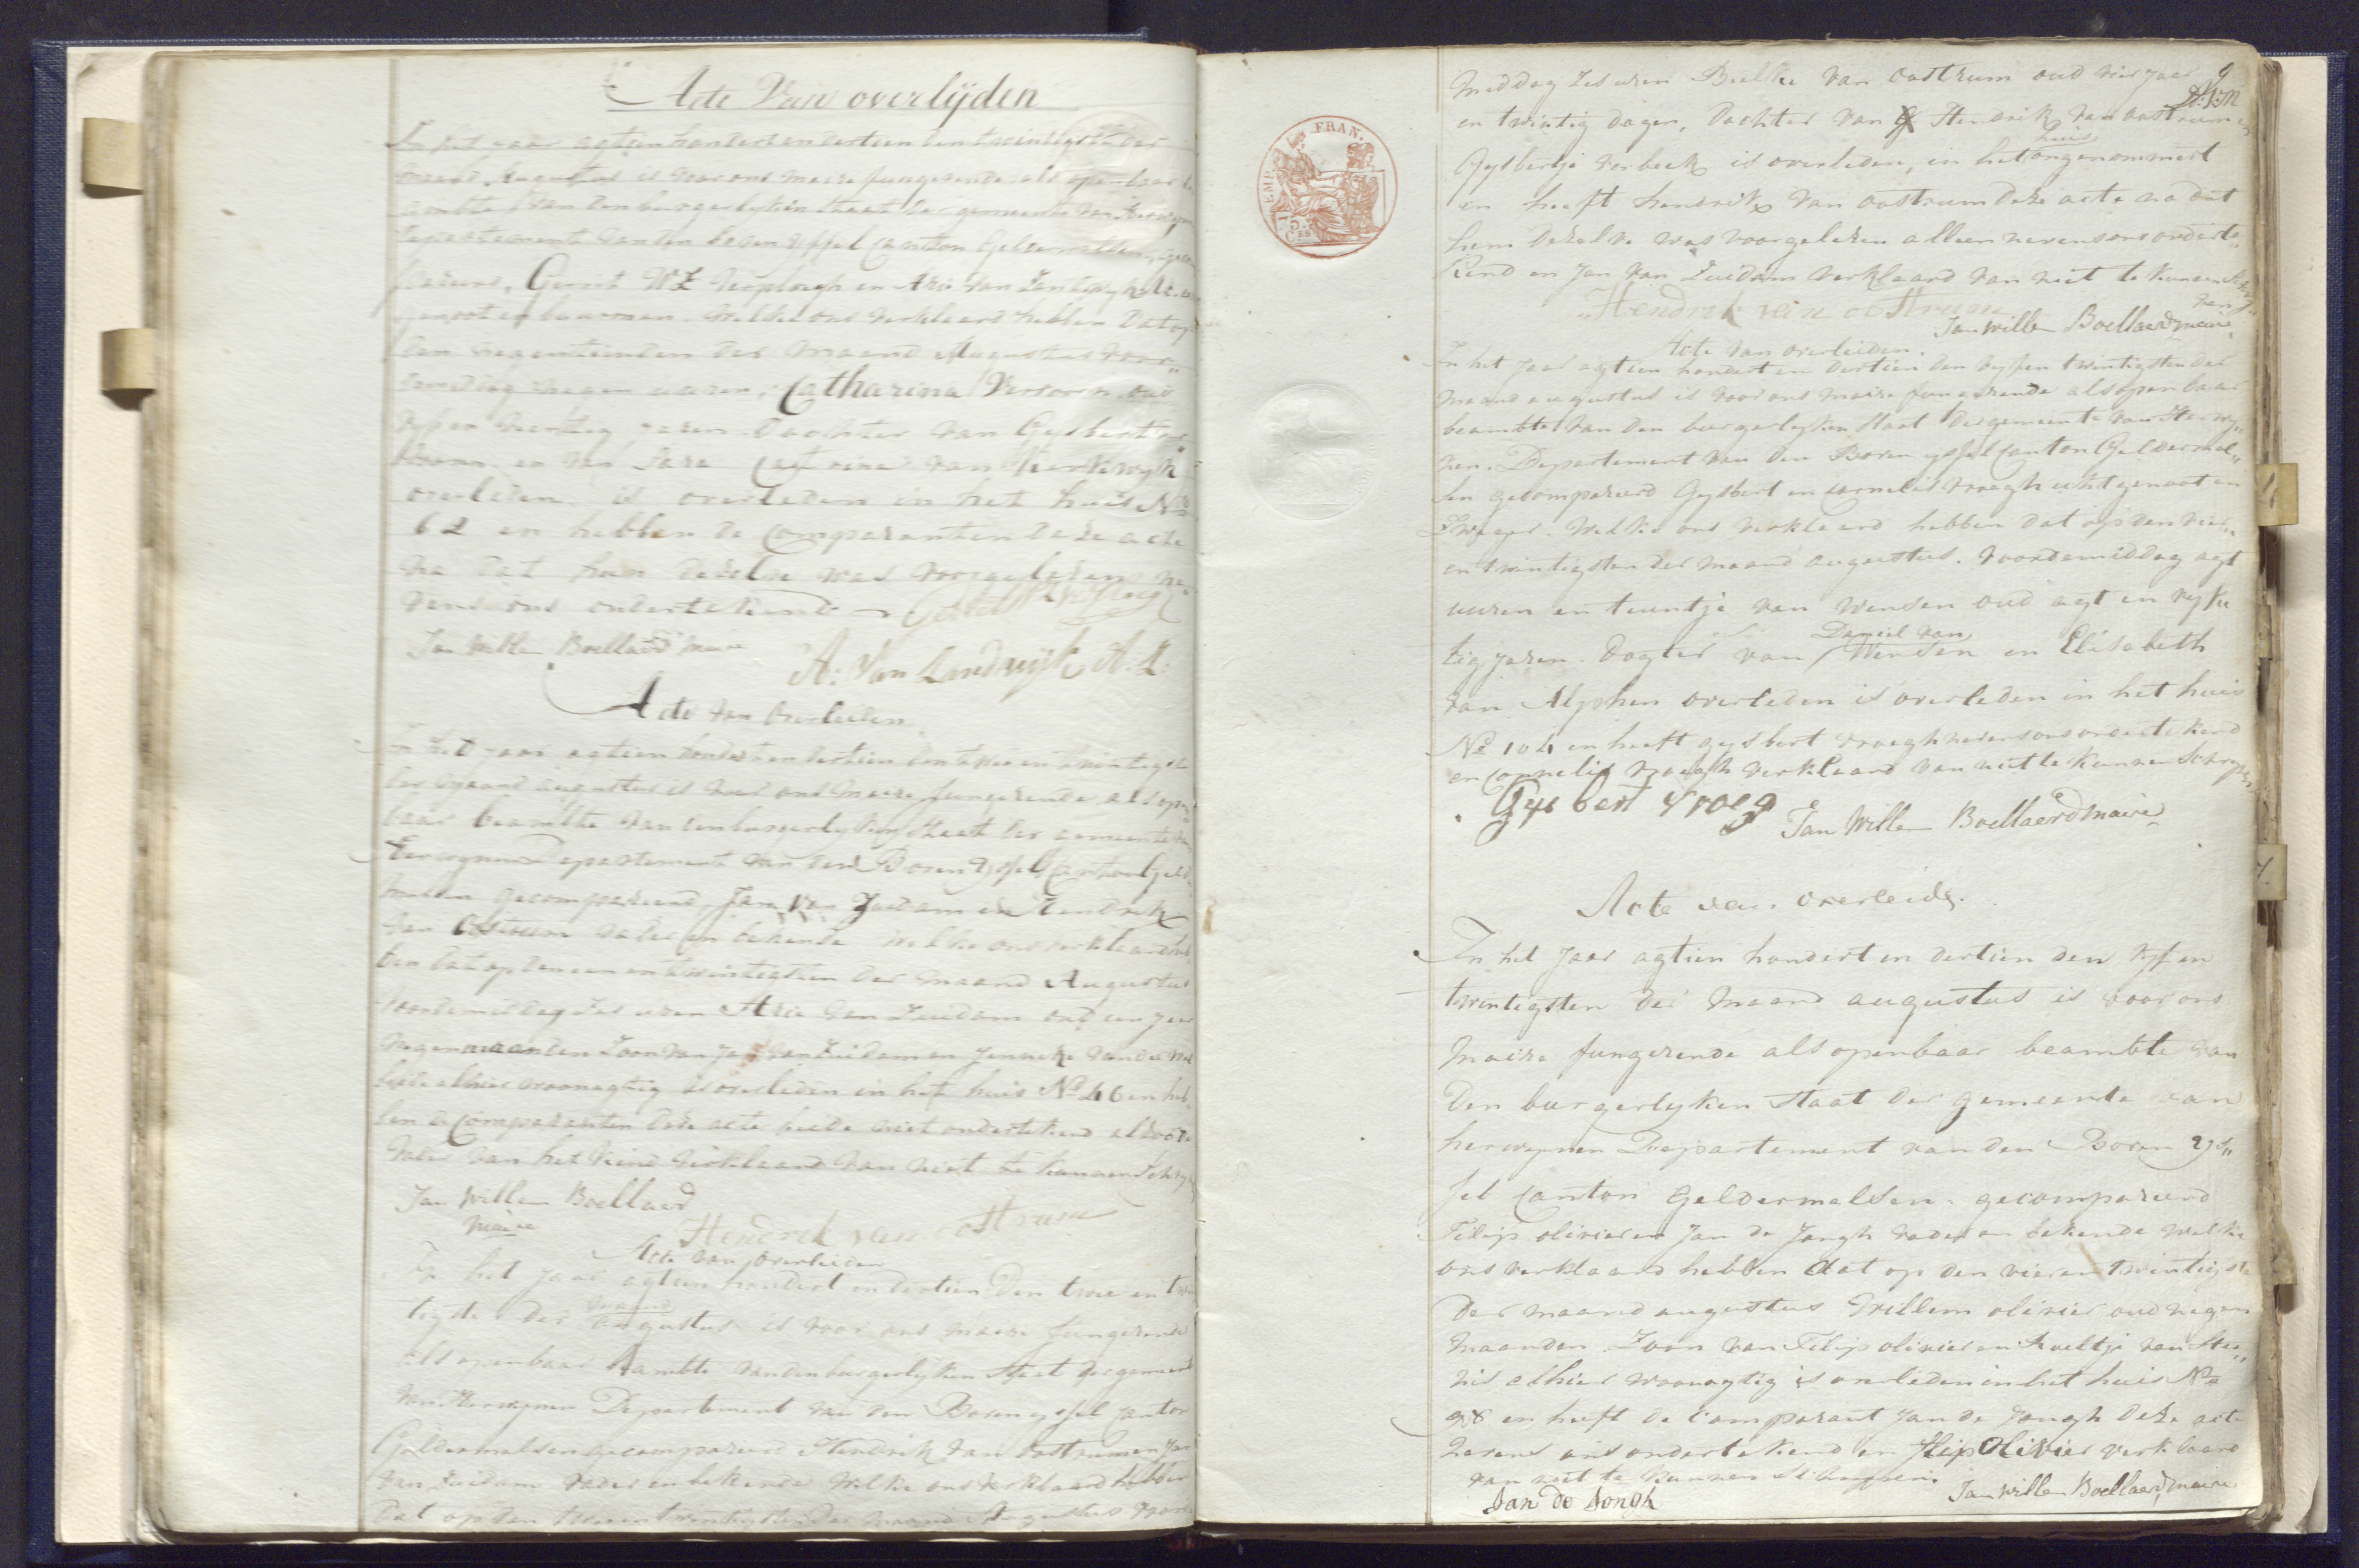 Acte Van overlijden
In het jaar agtien hondert en dertien den twintigste der
maand Augustus is voor ons maire fungerende als openbaar
beambte van den burgerlyken staat der gemeente van Herwynen
departement van den boven yssel Canton Geldermalsen, gecom
pareerd, Gerrit WZ Verploegh en Arie van Landwyk
genoot en buurman. Welke ons verklaard hebben dat op
den negentienden der maand Augustus voor„
demiddag negen uuren, Catharina Versoorn oud
vyf en veertig jaren Dochter van Gysbert
en van Sara Catrina van Kerkwyk
overleden is overleden in het huis No
62 en hebben de Comparanten deze acte
na dat hun dezelve was voorgelezen ne„
vens ons ondertekend
Jan Willem Boellaard maire
A: Van Landwijk A:Z:
Acte van Overleiden
In het jaar agtien hondert en dertien den twee en twintigste
der maand augustus is voor ons maire fungerende als open
baar beambte van den burgerlyken staat der gemeente van
Herwynen Departement van den Boven Yssel Canton Gelder
malsen gecompareerd, Jan Van Zuidam en Hendrik
van Oostrum vader en bekende welke ons verklaard heb
ben dat op den een en twintigsten der maand Augustus
voordemiddag zes uren Arie van Zuidam oud een jaar
negen maanden Zoon van Jan van Zuidam en Jenneke van der
beide alhier woonagtig is overleden in het huis No 46 en heb
ben de Comparanten deze acte beide niet ondertekend alzoo de
vader van het kind verklaard van niet te kunnen schryven
Jan Willem Boellaard
maire
Hendrik van oostrum
Acte van overleiden
In het jaar agtien hondert en dertien Den twee en twin
tigste der maand augustus is voor ons maire fungerende
als openbaar beambte van den burgerlyken staat der gemeente
van Herwynen Departement van den Boven yssel Canton
Geldermalsen gecompareerd Hendrik van Oostrum en Jan
van Zuidam vader en bekende welke ons verklaard hebben
dat op den twee en twintigsten der maand Augustus voorde
9
middag zes uren Beelke van oostrum oud vier jaar
en twintig dagen, Dochter van Hendrik van oostrum en
Gysbertje verbeek is overleden, in het huis ongenommert
en heeft hendrik van oostrum deze acte na dat
hem dezelve was voorgelezen alleen nevens ons onderte„
kend en Jan van Zuidam verklaard van niet te kunnen schry
ven
Hendrik van oostrum
Jan Willem Boellaard maire
Acte van overleiden.
In het jaar agtien hondert en dertien den vyf en twintigsten der
maand augustus is voor ons maire fungerende als openbaar
beambte van den burgerlyken staat der gemeente van Herwy„
nen. Departement van den Boven yssel Canton Geldermal„
sen gecompareerd Gysbert en Cornelis vroegh echtgenoot en
Zwager. Welke ons verklaard hebben dat op den vier„
en twintigsten der maand augustus. voordemiddag agt
uuren en teuntje van Wensen oud agt en vyftig
tig jaren. Dogter van Daniel van Wensen en Elisabeth
van Alphen overleden is overleden in het huis
No 104 en heeft gysbert vroegh nevens ons ondertekend
en Cornelis vroegh verklaard van niet te kunnen schryven
Gysbert vroeg
Jan Willem Boellaerd maire
Acte van overleidg.
In het Jaar agtien hondert en dertien den vyf en
twintigsten der maand augustus is voor ons
maire fungerende als openbaar beambte van
Den burgerlyken staat der gemeente van
herwynen Departement van den Boven Ys„
sel Canton Geldermalsen. gecompareerd
Filip olivier en Jan de Jongh vader en bekende welke
ons verklaard hebben dat op den vier en twintigste
Der maand augustus Willem olivier oud negen
maanden Zoon van Filip olivier en Aaeltje van
alhier woonagtig is overleden in het huis No
98 en heeft de Comparant Jan de Jongh deze acte
nevens ons ondertekend en flip Olivier verklaard
van niet te kunnen schryven.
Jan de Jongh
Jan Willem Boellaerd, maire
EMP. FRAN.